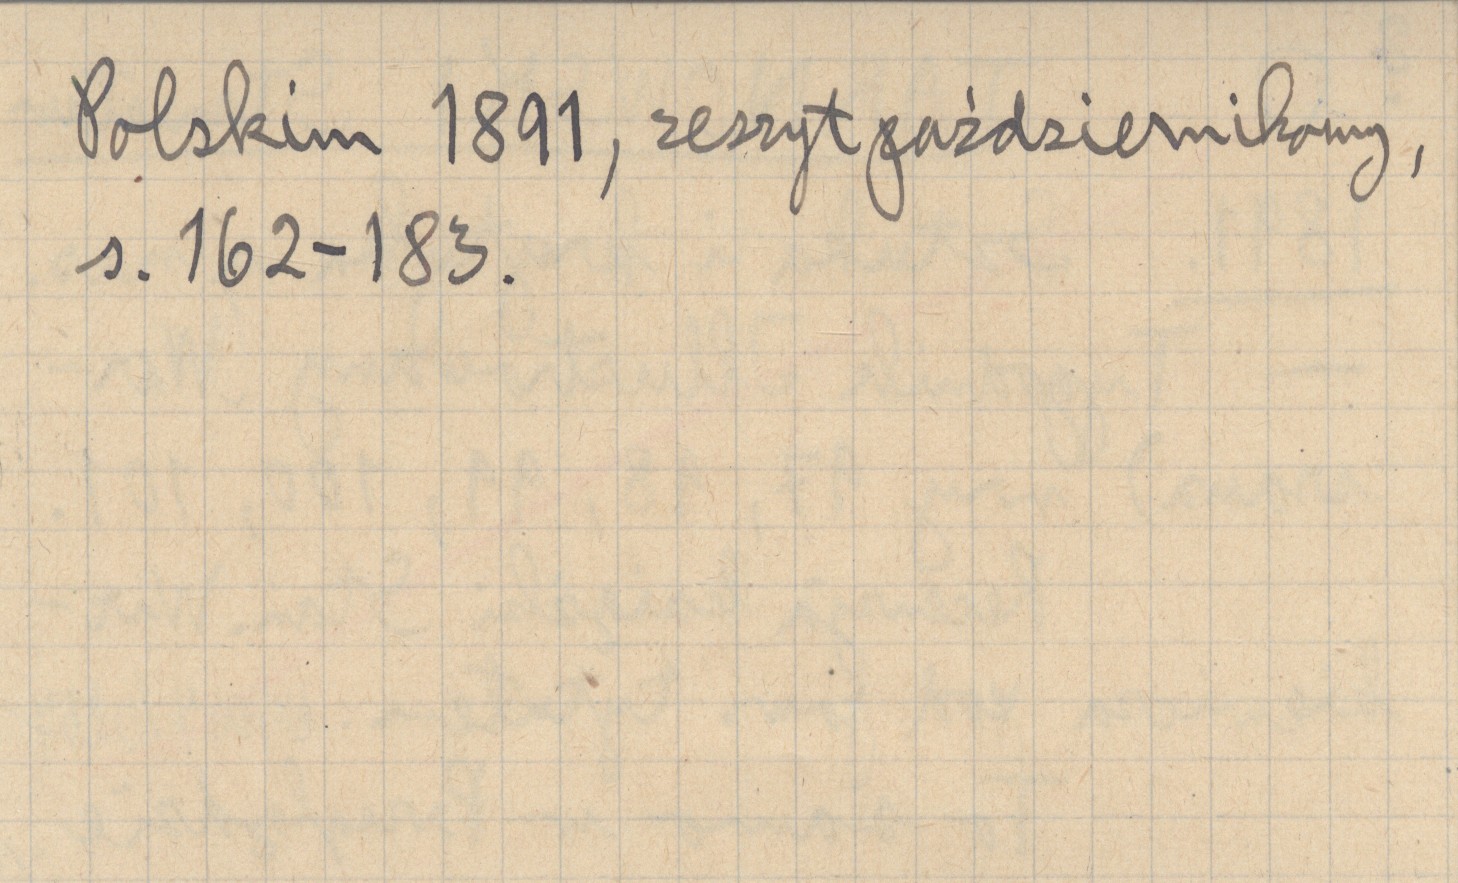 Polskim 1891, zeszyt październikowy,
s. 162-183.